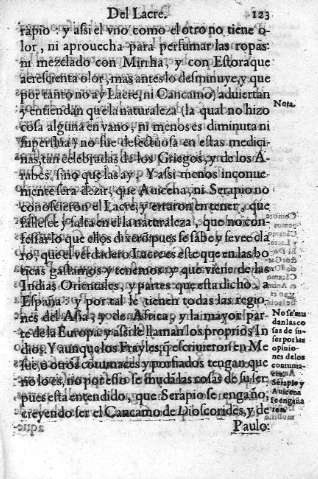 Del Lacre. 123
rapio: y aßi el vno como el otro no tiene o-
lor, ni aprouecha para perfumar las ropas:
ni mezclado con Minha, y con Estoraque
acresçenta olor, mas antes lo desminuye, y que
por tanto no ay Lacre, ni Cancamo) aduiertan
y entiendan que la naturaleza (la qual no hizo
cosa alguna en vano, ni menos es diminuta ni
superflua) no fue defectuosa en estas medici-
nas, tan celebradas de los Griegos, y de los A-
rabes, sino que las ay. Y assi menos inconue-
niente sera dezir, que Auicena, ni Serapio no
conoscieron el Lacre, y erraron en tener, que
fallesce y falta en ella naturaleza, que no con-
fessar lo que ellos dixeron pues se sabe y se vee cla
ro, que el verdadero Lacre es este que en las bo-
ticas gastamos y tenemos y que viene de las
Indias Orientales, y partes que esta dicho a
España: y por tal le tienen todas las regio
nes del Asia, y de Africa, y la mayor par
te de la Europa y aßi le llaman los proprios In
dios. Y aunque los Frayles q̃ escriuieron en Me
sue, o otros contumaces y porfiados tengan que
no lo es, no por esso se muda las cosas de su ser
pues esta entendido, que Serapio se engaño,
creyendo ser el Cancamo de Dioscorides, y de
Paulo:
Nota.
No se mu
dan las co
sas de su
ser por las
opinio-
nes de los
contuma
ces.
Serapio y
Auicena
se engaña
ron.